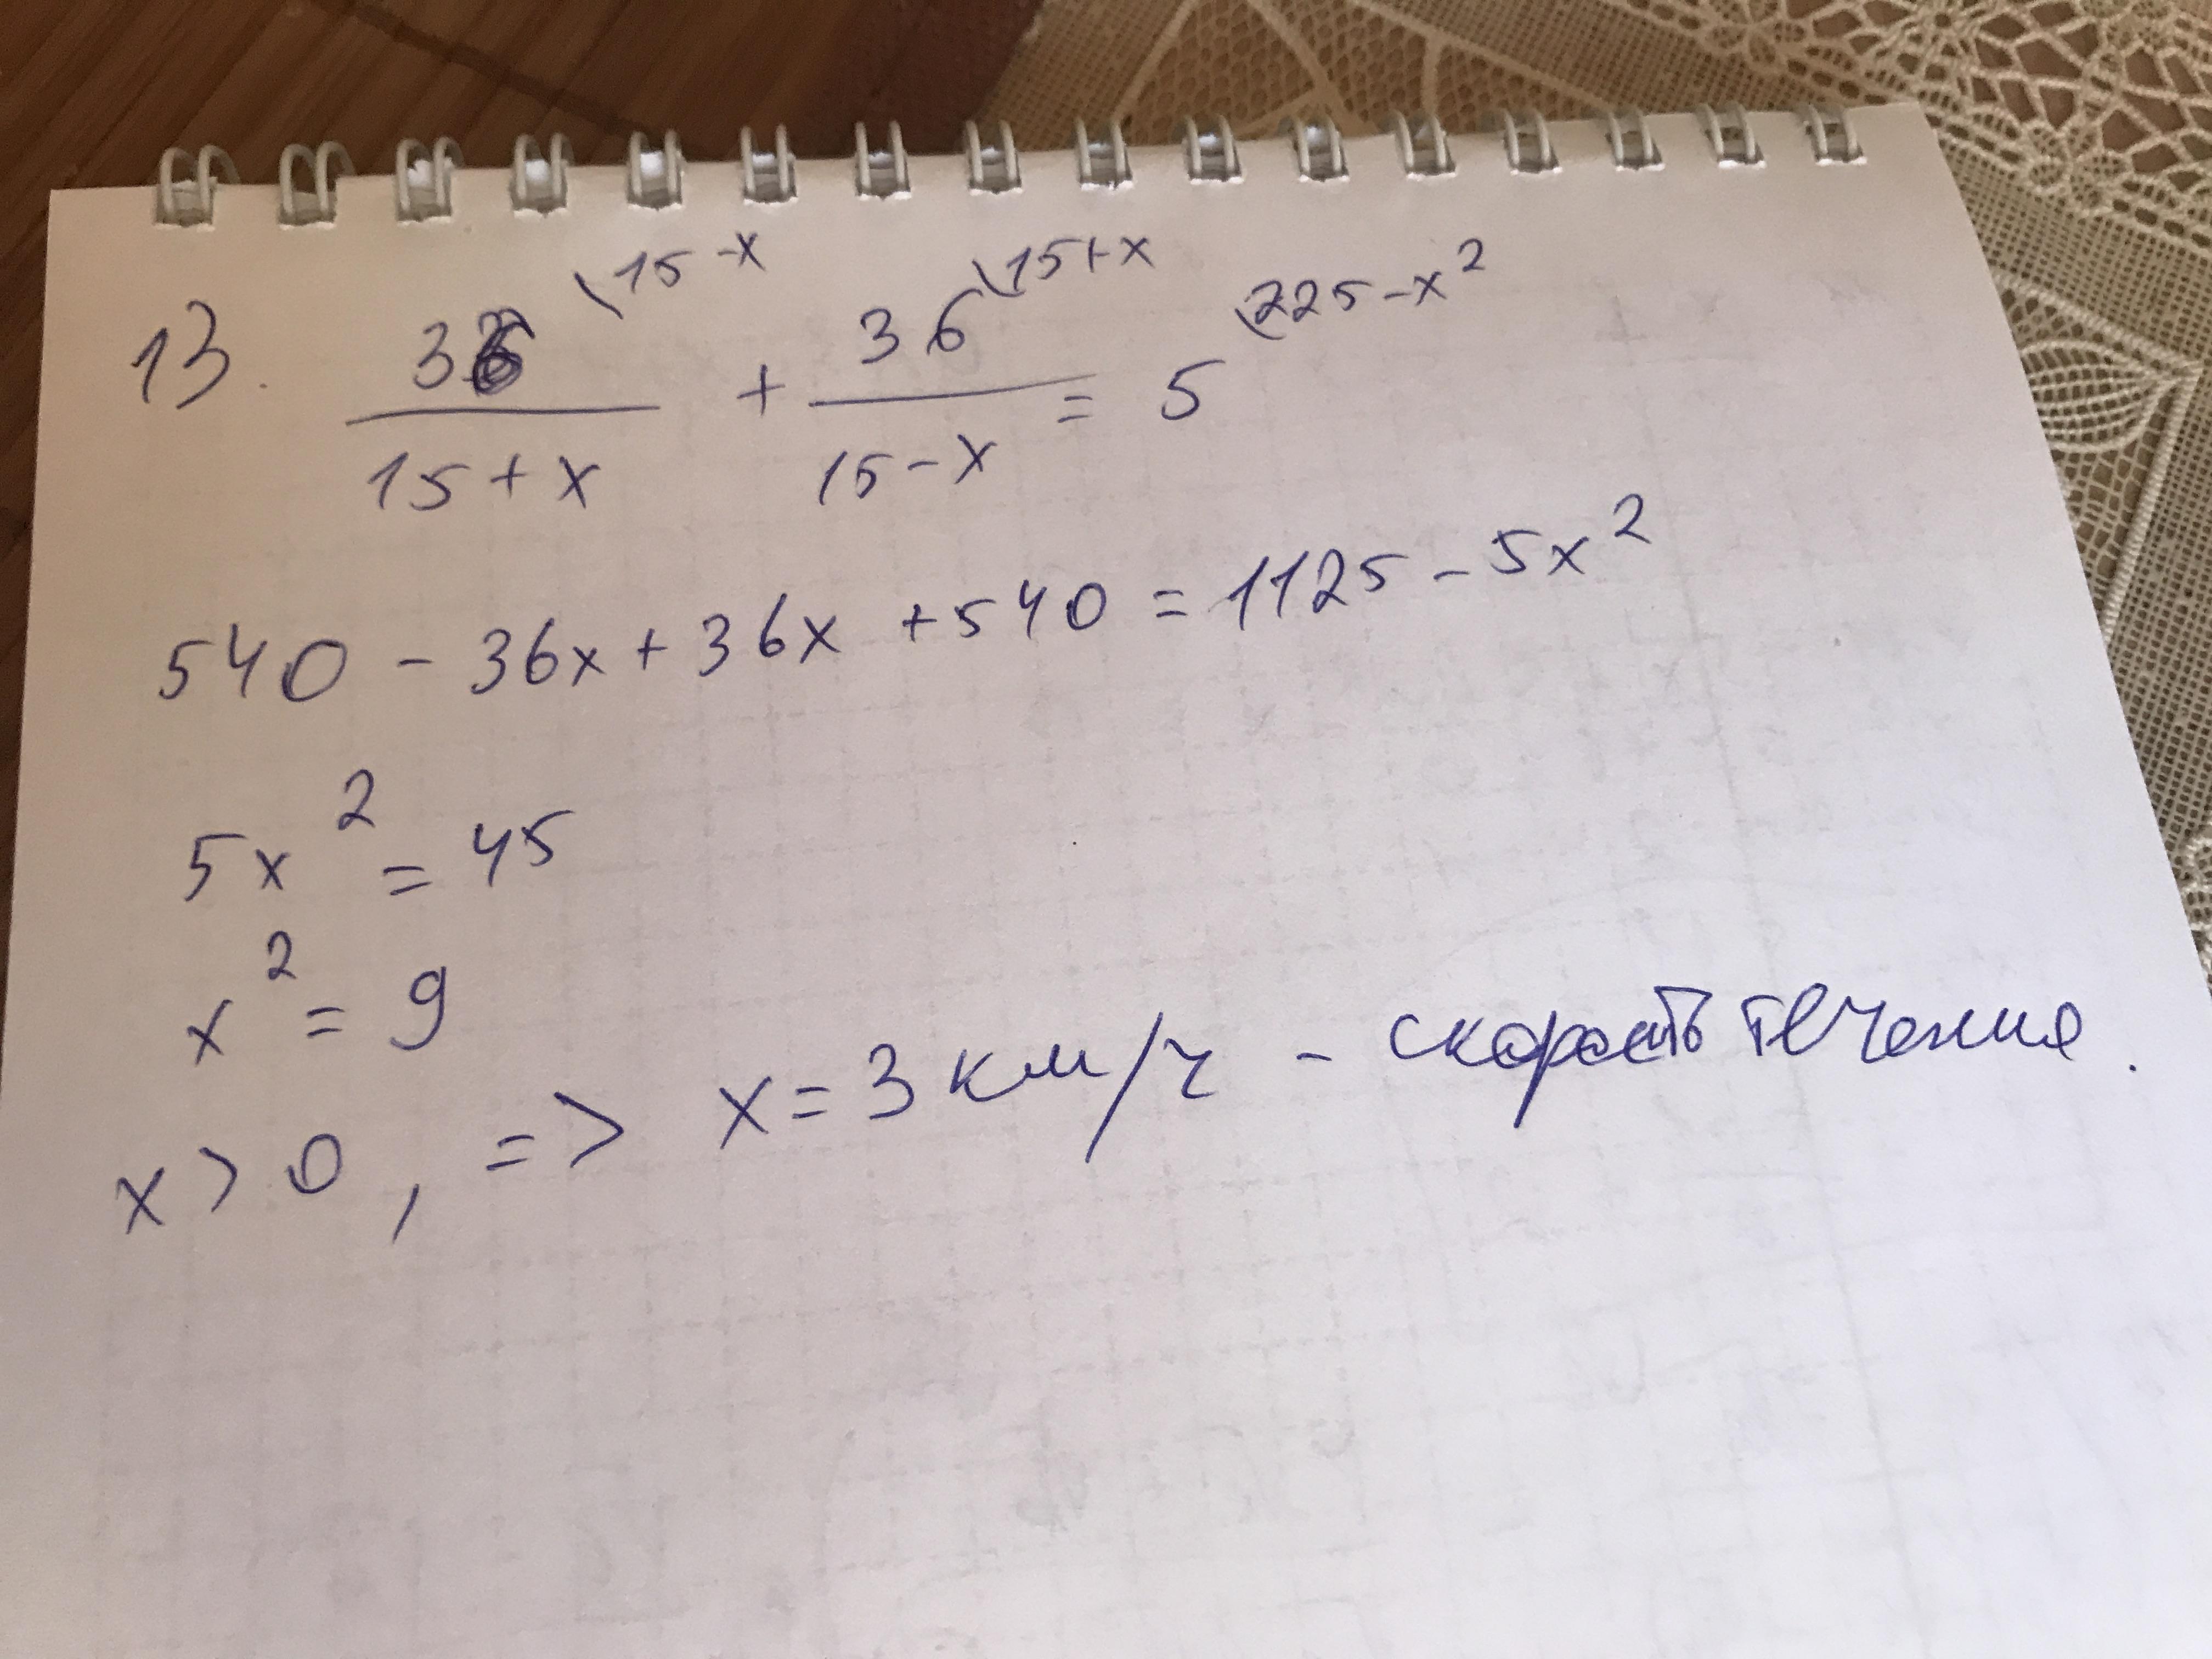 13. 36\15-x / 15+x + 36\15+x / 15-x = 5\225-x²
540 - 36x + 36x + 540 = 1125 - 5x²
5x² = 45
x² = 9
x > 0, => x = 3 км/ч - скорость течения.